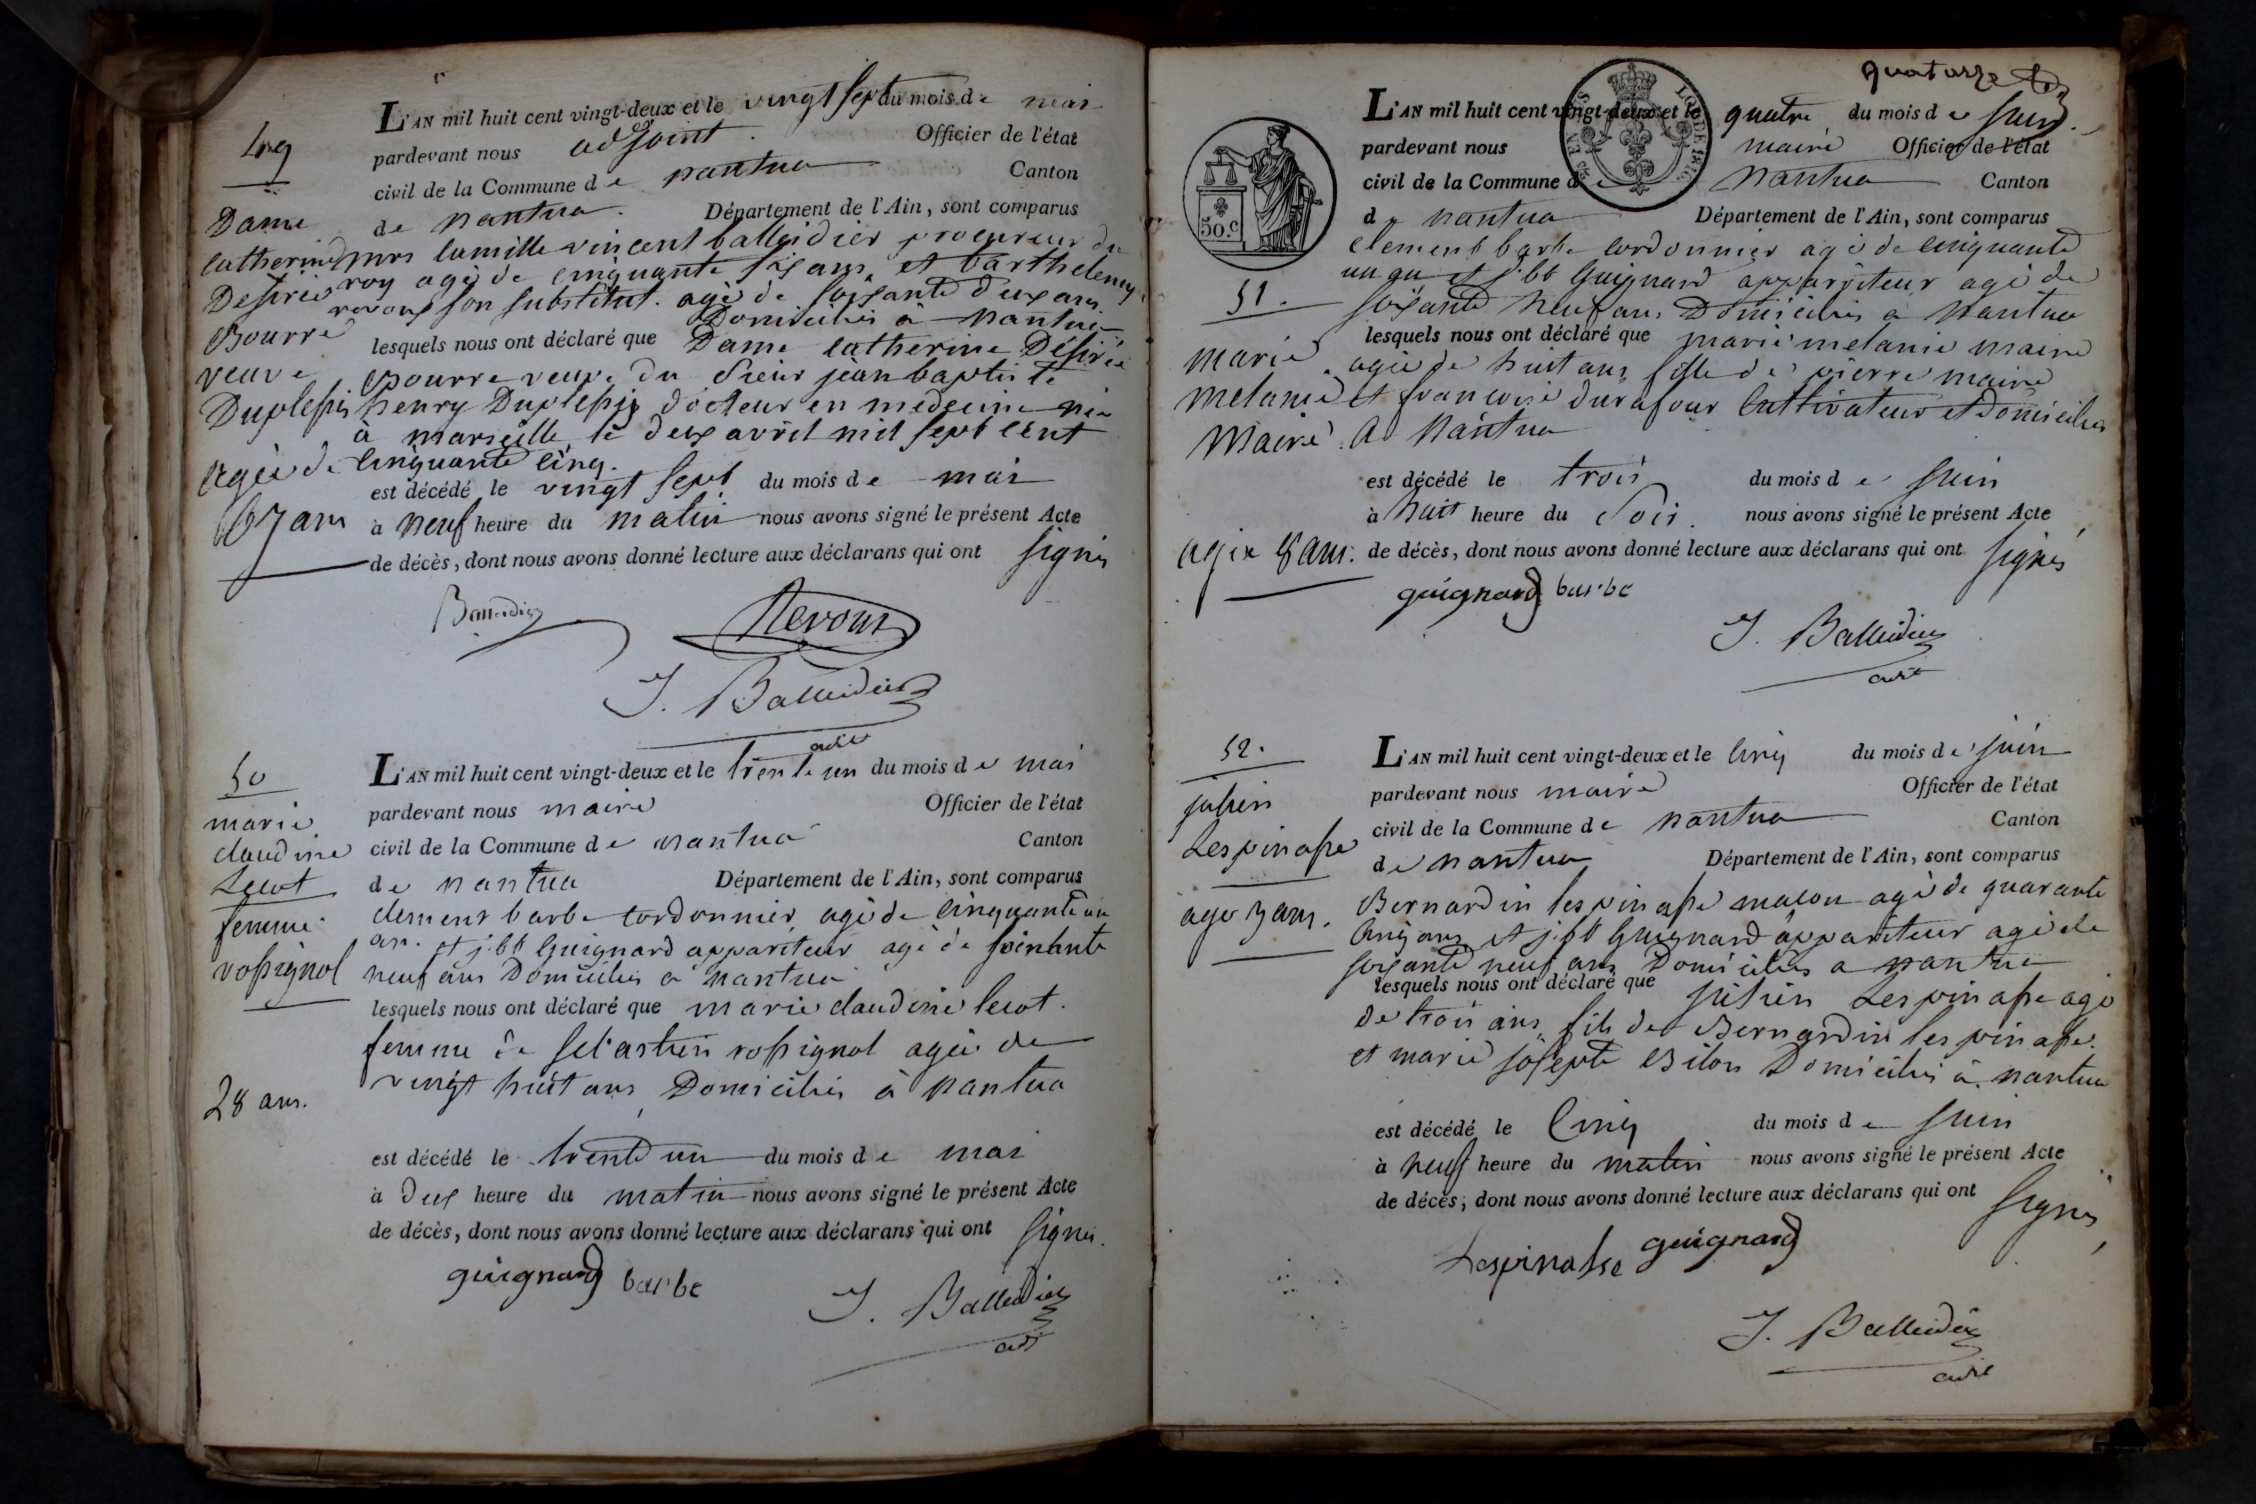 49
Dame
catherine
Desirée
Bourre
veuve
Duplessis
agée de
67 ans
L'AN mil huit cent vingt-deux et le vingt sept du mois de mai
pardevant nous adjoint Officier de l'état
civil de la Commune de nantua Canton
de nantua. Département de l'Ain, sont comparus
mrs camille vincent balleidier procureur du
roy agé de cinquante six ans et barthelemy
revoux son substitut. agé de soixante deux ans
Domiciliés à nantua
lesquels nous ont déclaré que Dame catherine Désirée
Bourre veuve du Sieur jean baptiste
henry Duplessis docteur en medecine née
à marseille le deux avril mil sept cent
cinquante cinq.
est décédé le vingt sept du mois de mai
à neuf heure du matin nous avons signé le présent Acte
de décès, dont nous avons donné lecture aux déclarans qui ont signés
Balleidier
Revoux
J. Balleidier
adjt
50
marie
claudine
Lecot
femme
rossignol
28 ans.
L'AN mil huit cent vingt-deux et le trente un du mois de mai
pardevant nous maire Officier de l'état
civil de la Commune de nantua Canton
de nantua Département de l'Ain, sont comparus
clement barbe cordonnier agé de cinquante un
an. et j. bt Guignard appariteur agé de soixante
neuf ans Domiciliés a nantua
lesquels nous ont déclaré que marie claudine lecot.
femme de sebastien rossignol agée de
vingt huit ans Domiciliés à nantua
est décédé le trente un du mois de mai
à deux heure du matin nous avons signé le présent Acte
de décès, dont nous avons donné lecture aux déclarans qui ont signés.
guignard barbe
J. Balleidier
adjt
quatorze
50.c
LOI DE 1816.
51.
marie
melanie
Maire
agée 8 ans.
L'AN mil huit cent vingt-deux et le quatre du mois de juin.
pardevant nous maire Officier de l'état
civil de la Commune de Nantua Canton
de nantua Département de l'Ain, sont comparus
clement barbe cordonnier agé de cinquante
un an et j. bt Guignard appariteur agé de
soixante neuf ans Domiciliés a nantua
lesquels nous ont déclaré que marie melanie maire
agée de huit ans fille de pierre maire
et francoise durafour cultivateurs et domiciliés
A Nantua
est décédé le trois du mois de juin
à huit heure du soir. nous avons signé le présent Acte
de décès, dont nous avons donné lecture aux déclarans qui ont signés
guignard barbe
J. Balleidier
adjt
52.
julien
Lespinasse
agé 3 ans.
L'AN mil huit cent vingt-deux et le cinq du mois de juin
pardevant nous maire Officier de l'état
civil de la Commune de nantua Canton
de nantua Département de l'Ain, sont comparus
Bernardin lespinasse macon agé de quarante
cinq ans et j. bt Guignard appariteur agé de
soixante neuf ans Domiciliés a nantua
lesquels nous ont déclaré que julien Lespinasse agé
de trois ans fils de Bernardin lespinasse.
et marie josepte Domiciliés à nantua
est décédé le cinq du mois de juin
à neuf heure du matin nous avons signé le présent Acte
de décès, dont nous avons donné lecture aux déclarans qui ont signés
Lespinasse guignard
J. Balleidier
adjt